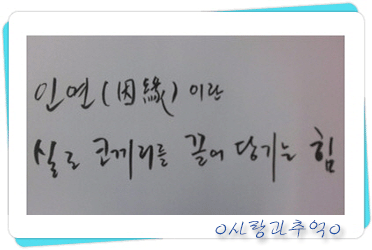 인연(因緣)이란
실로 코끼리를 끌어 당기는 힘
o사랑과추억o